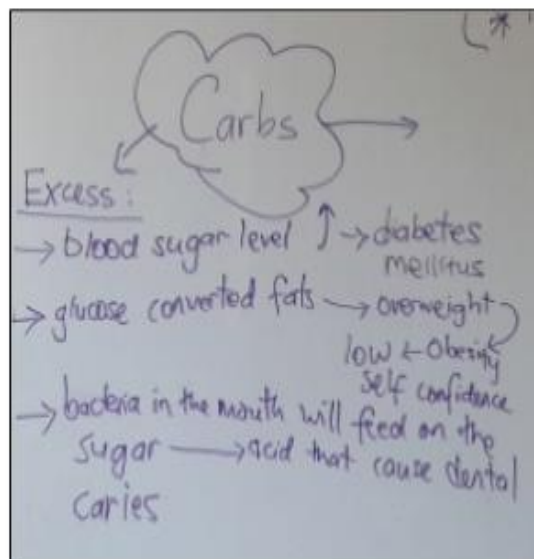 (*
Carbs
Excess :
→ blood sugar level ↑ → diabetes
mellitus
→ glucose converted fats → overweight
low ← Obesity
self confidence
→ bacteria in the mouth will feed on the
sugar → acid that cause dental
caries